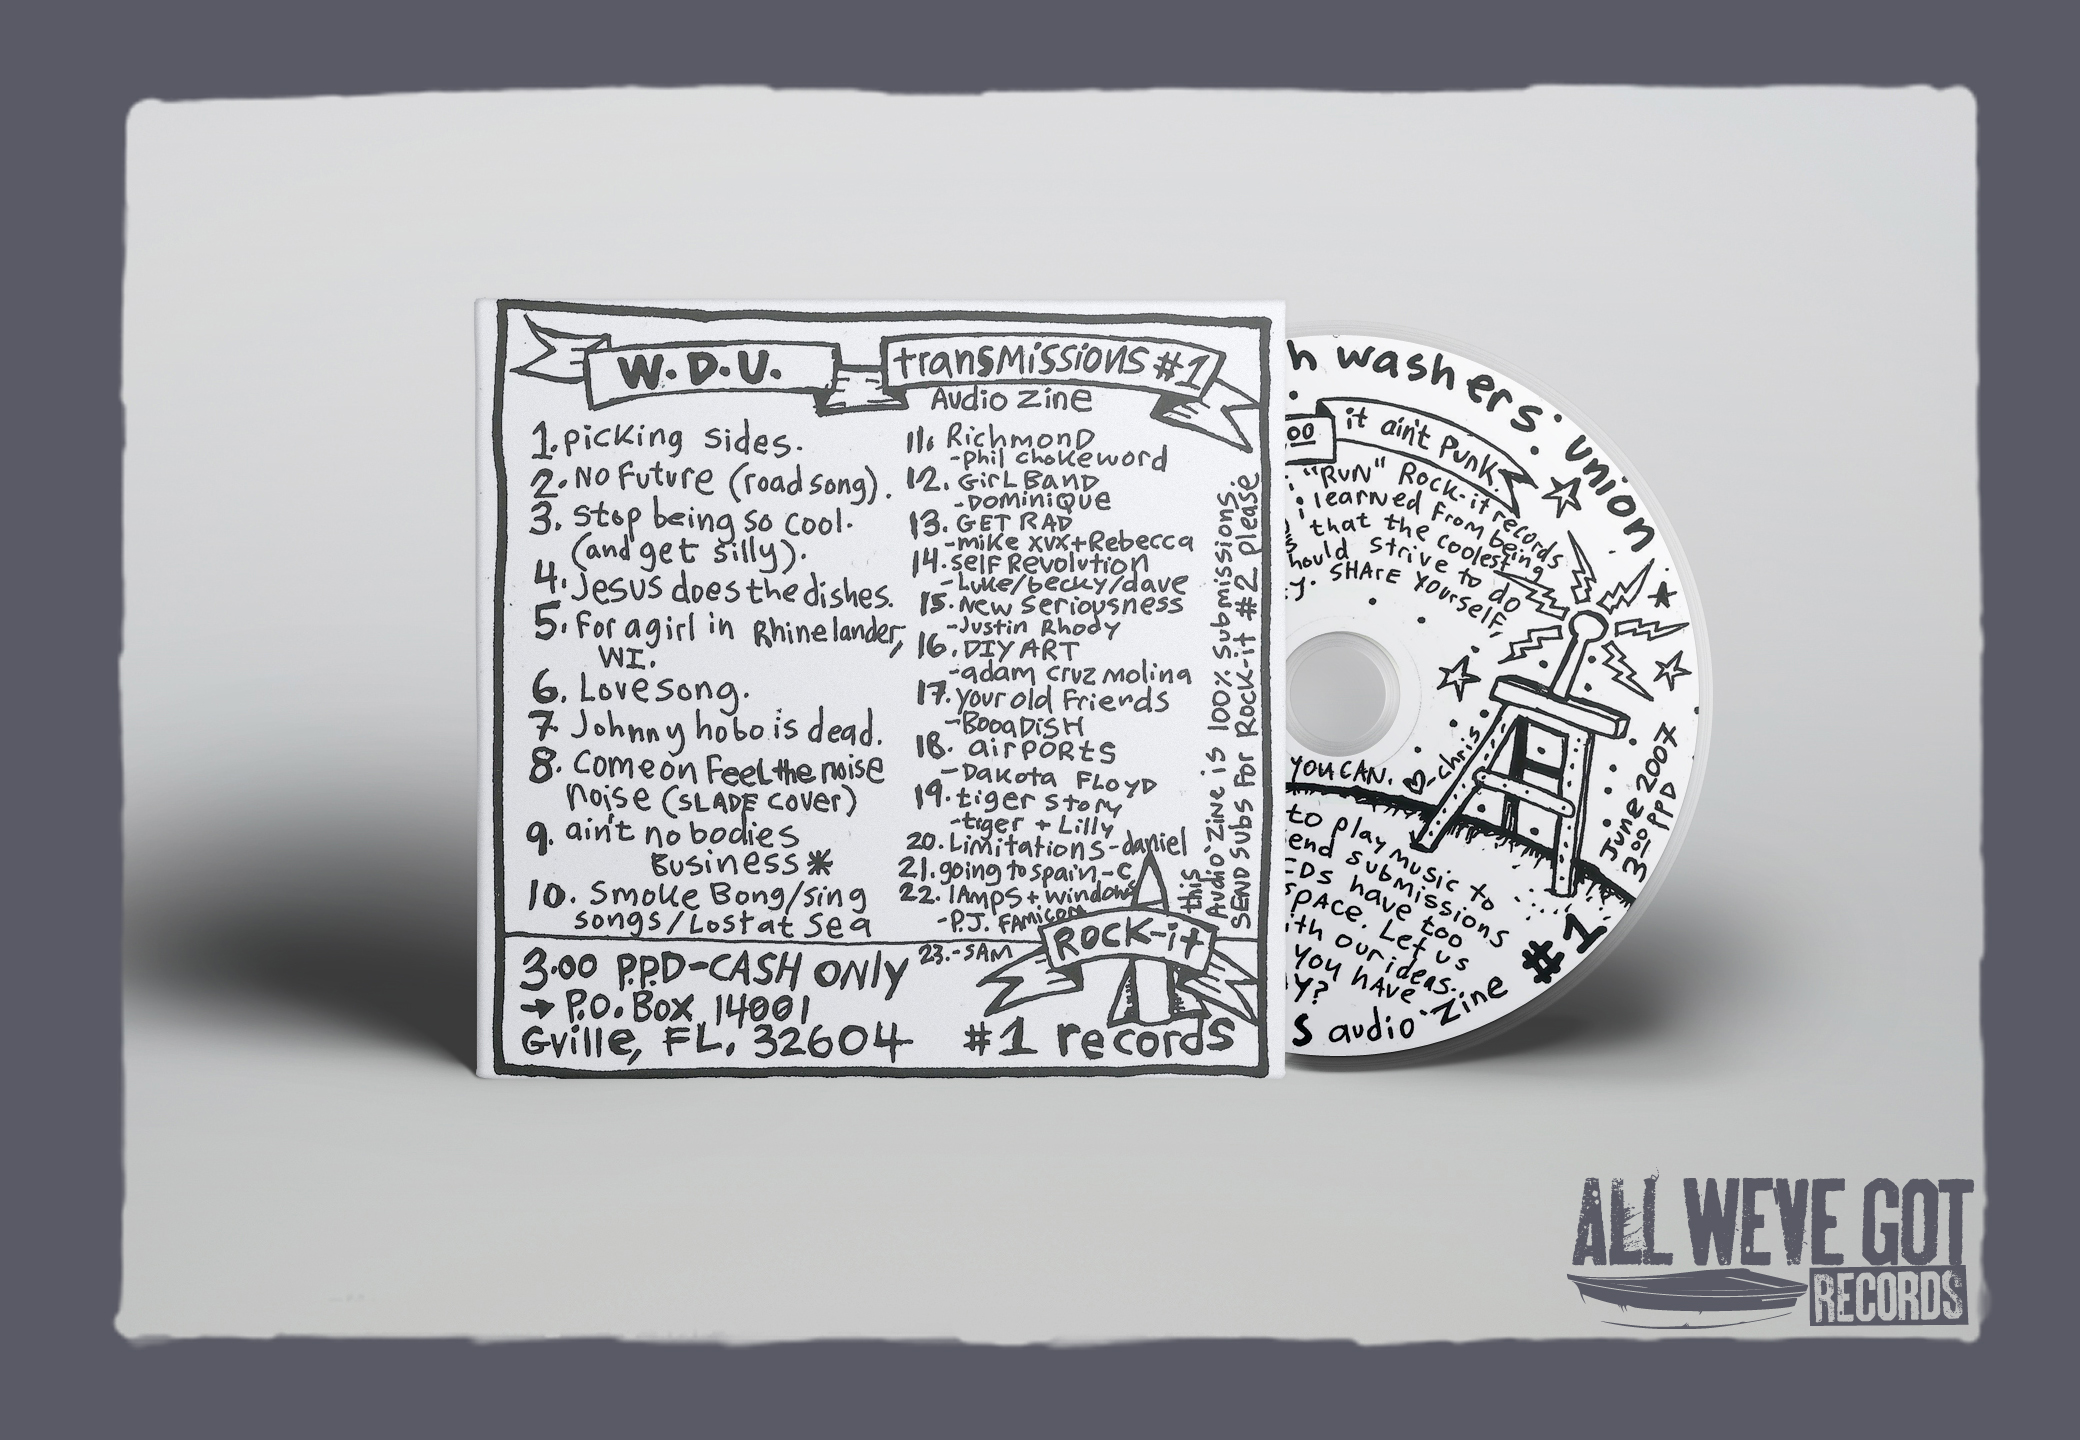 W.D.U.
transmissions #1
Audio Zine
1. picking sides.
2. NO Future (road song).
3. stop being so cool.
(and get silly).
4. Jesus does the dishes.
5. for a girl in Rhinelander,
WI.
6. Love song.
7 Johnny hobo is dead.
8. come on Feel the noise
noise (SLADE cover)
9. ain't no bodies
Business*
10. Smoke Bong/sing
songs/Lost at Sea
11. RichmonD
-phil chokeword
12. GirL BanD
-DominiQue
13. GET RAD
-mike xvx+Rebecca
14. self Revolution
-Luke/becky/dave
15. New seriousness
-Justin Rhody
16. DIY ART
-adam cruz molina
17. your old Friends
-BooaDiSH
18. airPORtS
-Dakota FLoyD
19. tiger story
-tiger + Lilly
20. Limitations-daniel
21. going to spain-C
22. lAmps + windows
-P.J. FAMicom
23.-SAM
this
Audio Zine is 100% submissions.
SEND subs for Rock-it #2 please
ROCK-it
#1 records
3.00 P.P.D-CASH ONLY
→ P.O. Box 14001
Gville, FL. 32604
h washers' union
.00
it ain't Punk.
"RUN" Rock-it records
i learned from being
that the coolest
hould strive to do
y. SHArE YourseLF,
YOU CAN.
♡-chris
June 2007
3.00 PPD
to play music to
end submissions
CDs have too
space. Let us
ith our ideas.
you have
Y?
S audio Zine #1
ALL WEVE GOT
RECORDS